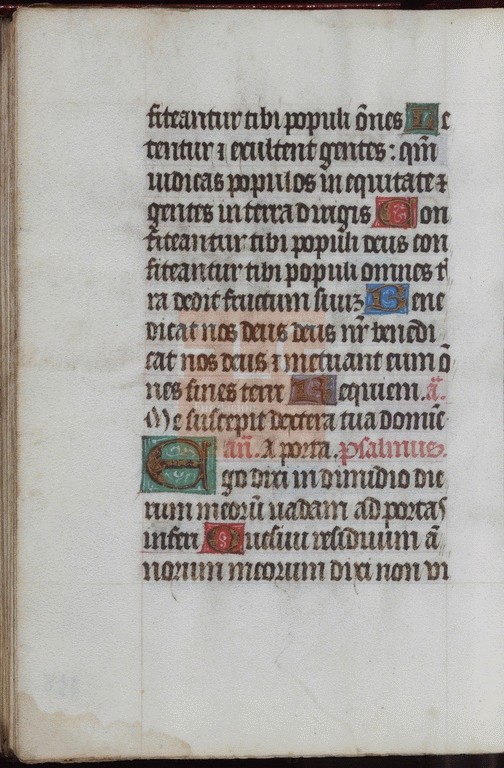 fiteantur tibi populi õnes Le
tentur ⁊ exultent gentes : qm̄
iudicas populos in equitate ⁊
gentes in terra dirigis Con
fiteantur tibi populi deus con
fiteantur tibi populi omnes t̄
ra dedit fructum suuꝫ Bene
dicat nos deus deus nr̄ benedi
cat nos deus ⁊ metuant eum õ
nes fines terre Requiem. ã.
Me suscepit dextera tua domīe
añ. A porta. Psalmus.
Ego dixi in dimidio die
rum meorū uadam ad portas
inferi Quesiui residuum ã
norum meorum dixi non vi